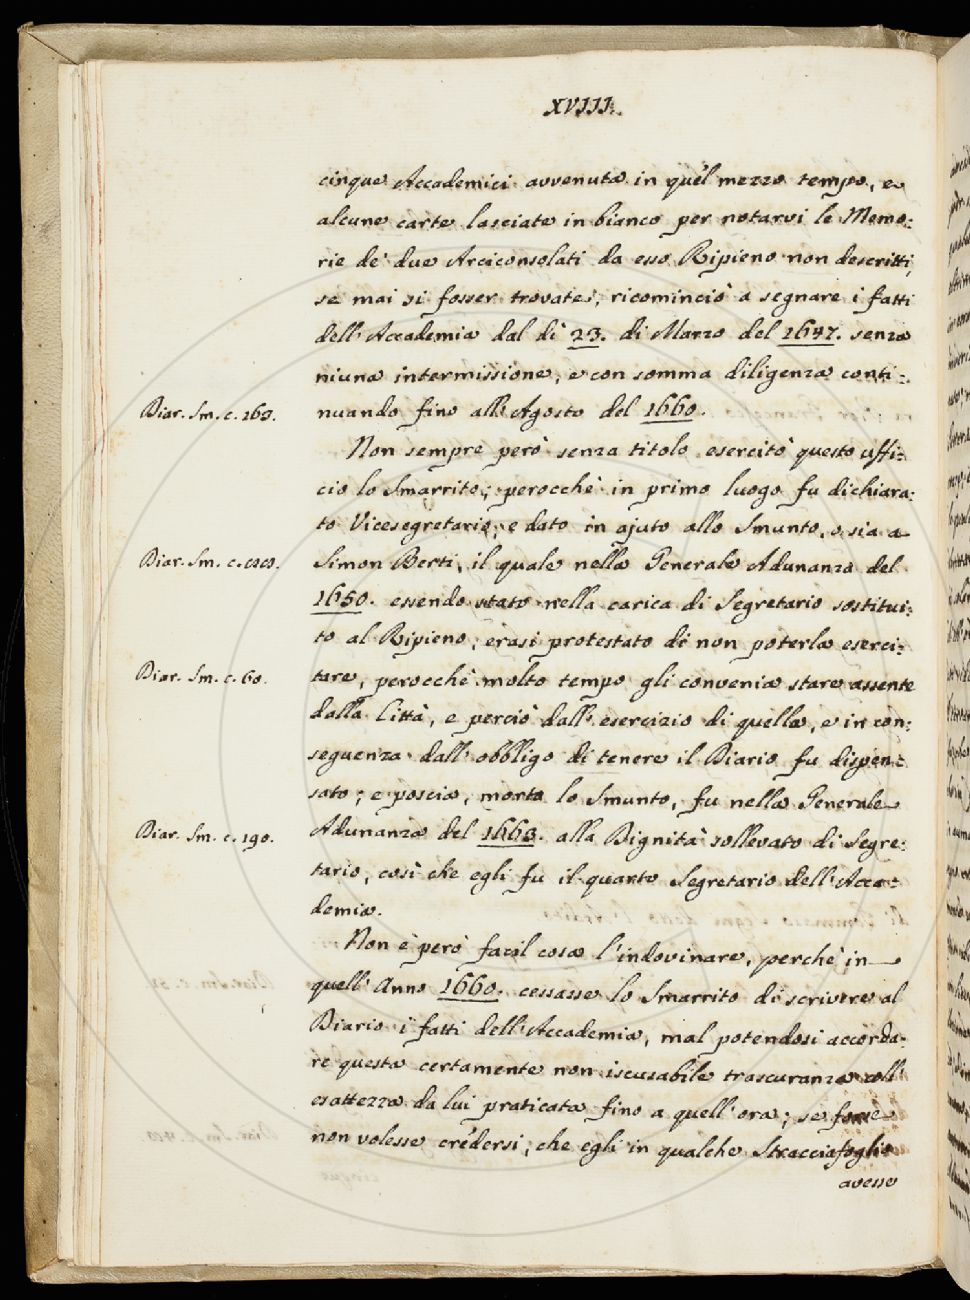 XVIII.
cinque Accademici avvenuta in quel mezzo tempo, e
alcune carte lasciate in bianco per notarvi le Memo:
rie de' due Arciconsolati da esso Ripieno non descritti,
se mai si fosser trovate, ricominciò a segnare i fatti
dell'Accademia dal dì 23. di Marzo del 1647. senza
niuna intermissione, e con somma diligenza conti:
Diar. Sm. c. 160.
nuando fino all'Agosto del 1660.
Non sempre però senza titolo esercitò questo uffi:
cio lo Smarrito; perocchè in primo luogo fu dichiara:
to Vicesegretario, e dato in ajuto allo Smunto, o sia a
Diar. Sm. c.
Simon Berti, il quale nella Generale Adunanza del
1650. essendo stato nella carica di Segretario sostitui:
to al Ripieno, erasi protestato di non poterla eserci:
Diar. Sm. c. 60.
tare, perocchè molto tempo gli convenia stare assente
dalla Città, e perciò dall'esercizio di quella, e in con:
seguenza dall'obbligo di tenere il Diario fu dispen:
sato; e poscia, morto lo Smunto, fu nella Generale
Diar. Sm. c. 190.
Adunanza del 1663. alla Dignità sollevato di Segre:
tario, così che egli fu il quarto Segretario dell'Acca:
demia.
Non è però facil cosa l'indovinare, perchè in
quell'Anno 1660. cessasse lo Smarrito di scrivere al
Diario i fatti dell'Accademia, mal potendosi accorda:
re questa certamente non iscusabile trascuranza coll'
esattezza da lui praticata fino a quell'ora; se forse
non volesse credersi, che egli in qualche Stracciafoglio
avesse